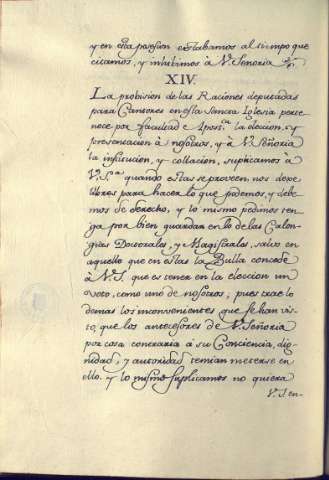 y en esta posesion estabamos al tiempo que
citamos, y inhibimos à V. Señoria
XIV.
La probision de las Raciones deputadas
para Cantores en esta Sancta Iglesia perte
nece por facultad e Apps.ca la eleccion, y
presentacion à nosotros, y à V. Señoria
la institucion, y collacion, suplicamos à
V. S.ª quando estas se proveen, nos dexe
libres para hacer lo que podemos, y debe
mos de derecho, y lo mismo pedimos ten
ga por bien guardar en lo de las Calon
gias Doctorales, y Magistrales, salvo en
aquello que en estas la Bulla concede
à V. S. que es tener en la eleccion un
voto, como uno de nosotros, pues trae lo
demas los inconvenientes que se han vis
to, que los antecesores de V. Señoria
por cosa contraria à su Conciencia, dig
nidad, y autoridad tenian meterse en
ello. y lo mismo suplicamos no quiera
V. S. en-